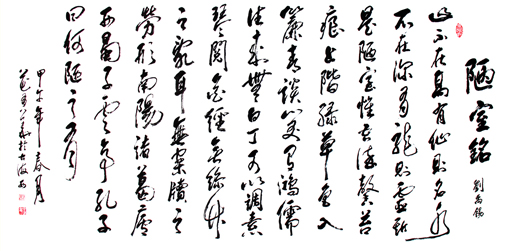 陋室銘
劉禹錫
山不在高有仙則名水
不在深有龍則靈斯
是陋室惟吾德馨苔
痕上階綠草色入
簾青談笑有鴻儒
往来無白丁可以調素
琴閱金經無絲竹
之亂耳無案牘之
勞形南陽諸葛廬
西蜀子雲亭孔子
曰何陋之有
甲午年春月